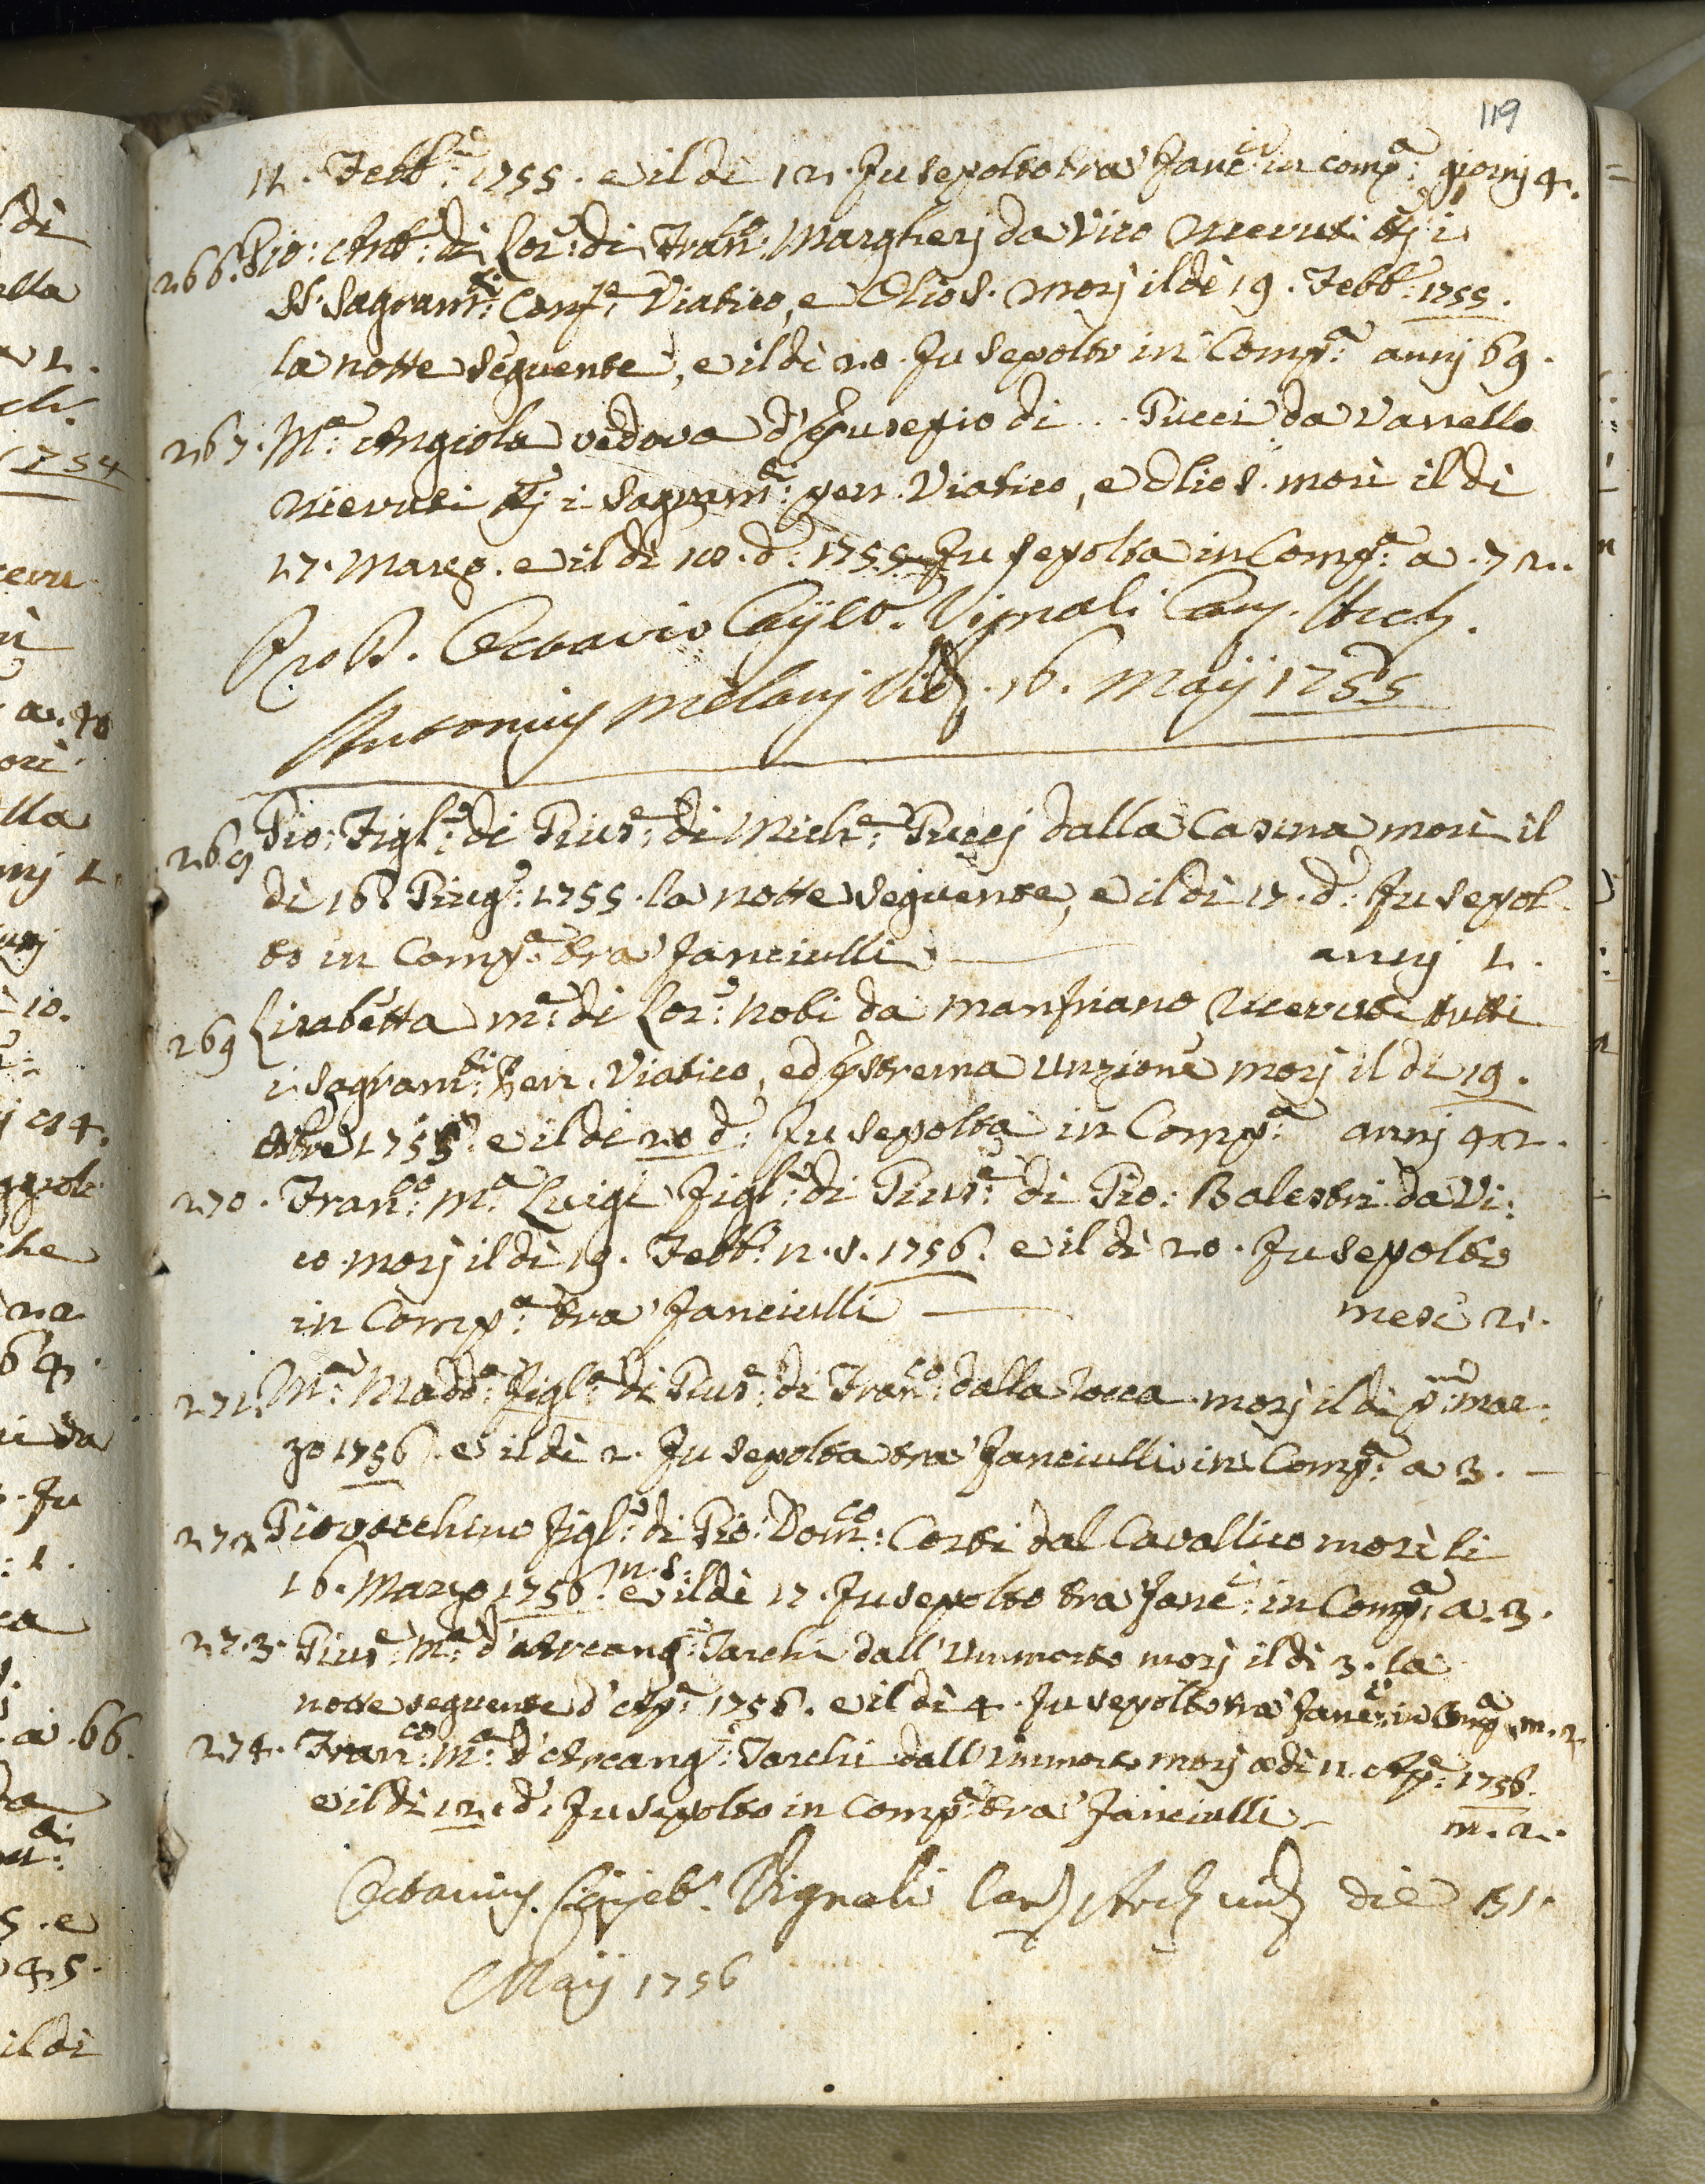 119
12. Febb:º 1755. e il dì 12. fu sepolto tra' fanc:i in comp:a giorni 4.
266. Gio: Ant:º di Lor:º di Fran:co Margherj da Vico ricevuti ttj i
SS. Sagram:ti Conf:e Viatico, e Olio S. morj il dì 19. Febb:º 1755.
la notte seguente, e il dì 20. fu sepolto in Comp:a annj 69.
267. M:a Angiola vedova d' Giusepio di ... Pucci da Vanella
ricevuti ttj i Sagram:ti pen. Viatico, e Olio S. morì il dì
17. Marzo. e il dì 18. d:º 1755 fu sepolta in Comp:a a. 72.
Pro D. Octavio Vignali Can. Arch.
Antonius Melanj 16. Maij 1755
269 Gio: Figl:º di Gius:e di Mich:e Puccj dalla Casina morì il
dì 16 Giug:º 1755. la notte seguente, e il dì 17. d:º fu sepol-
to in Comp:a tra' fanciulli annj 1.
269 Lisabetta m:e di Lor:º Nobi da Manfriano ricevuti tutti
i Sagram:ti Pen. Viatico, ed Estrema Unzione morj il dì 19.
1755. e il dì 20 d:º fu sepolta in Comp:a annj 42.
270. Fran:co M:a Luigi figl:º di Gius:e di Gio: Balestri da Vi:
co morj il dì 19. Febb:º n. s. 1756. e il dì 20. fu sepolto
in Comp:a tra' fanciulli mesi 2.
271. M:a Madd:a figl:a di Gius:e di Fran:co dalla Rocca morj il dì p:mo mar:
zo 1756. e il dì 2. fu sepolta tra' fanciulli in Comp:a a 3.
272 Giovacchino figl:º di Gio: Dom:co Corti dal Cavallico morì li
16. Marzo 1756. n. s. e il dì 17. fu sepolto tra' fanc:i in Comp:a a. 3.
273. Gius:e M:a d' Arcang:º Tarchi dall' Ummorto morj il dì 3. la
notte seguente d' Ap:e 1756. e il dì 4. fu sepolto tra' fanc:i in Comp:a m. 2.
274. Fran:co M:a d' Arcang:º Tarchi dall' Ummorto morj a dì 11. Ap:e 1756.
e il dì 12. d:º fu sepolto in Comp:a tra' fanciulli m. 2.
Octavius Vignali Can Arch vid die 31.
Maij 1756